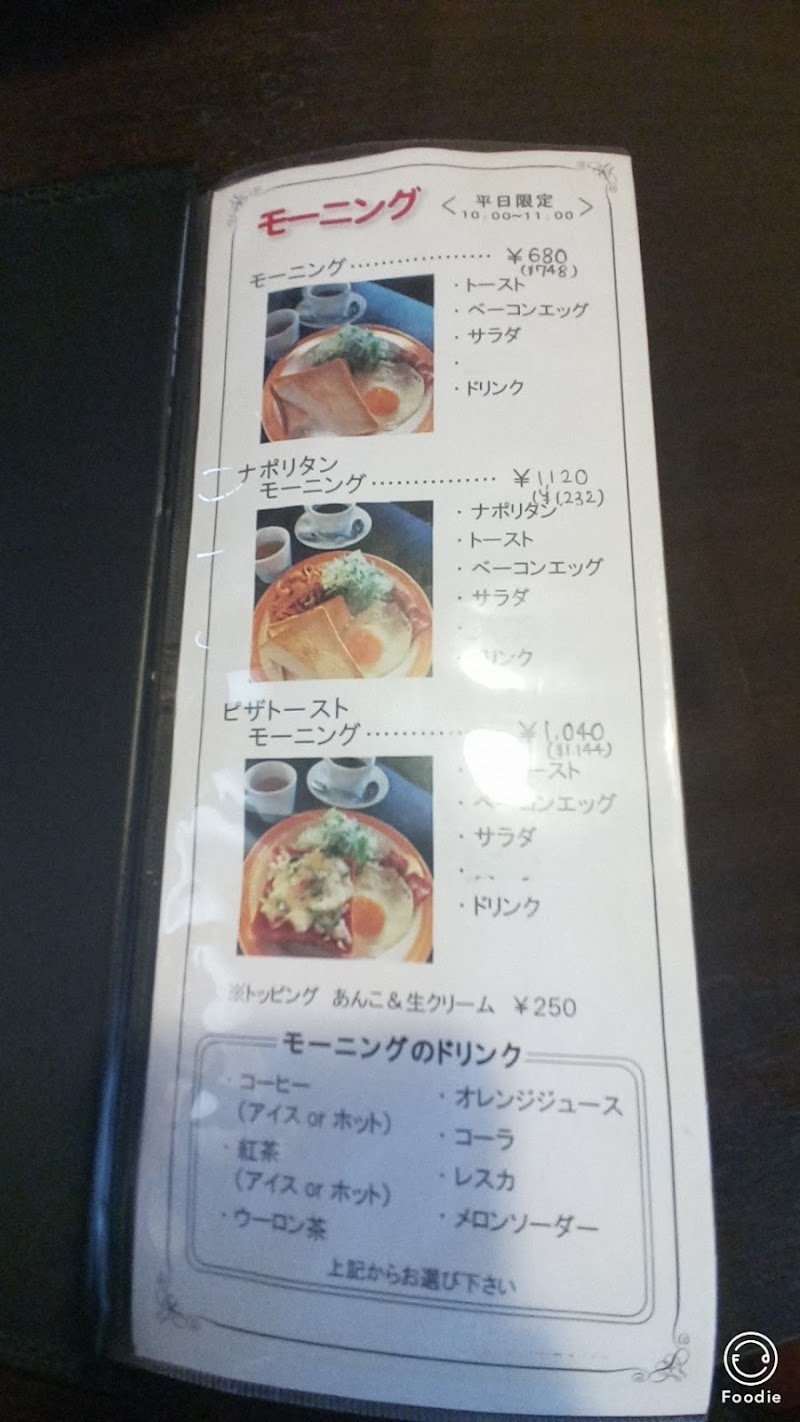 モーニング
＜平日限定 10:00~11:00＞
モーニング……………… ￥680
(￥748)
・トースト
・ベーコンエッグ
・サラダ
・
・ドリンク
ナポリタン
モーニング…………… ￥1120
(￥1232)
・ナポリタン
・トースト
・ベーコンエッグ
・サラダ
・
・ドリンク
ピザトースト
モーニング…………… ￥1,040
(￥1144)
ースト
・ベーコンエッグ
・サラダ
・
・ドリンク
※トッピング あんこ＆生クリーム ￥250
モーニングのドリンク
・コーヒー
(アイス or ホット)
・紅茶
(アイス or ホット)
・ウーロン茶
・オレンジジュース
・コーラ
・レスカ
・メロンソーダー
上記からお選び下さい
Foodie